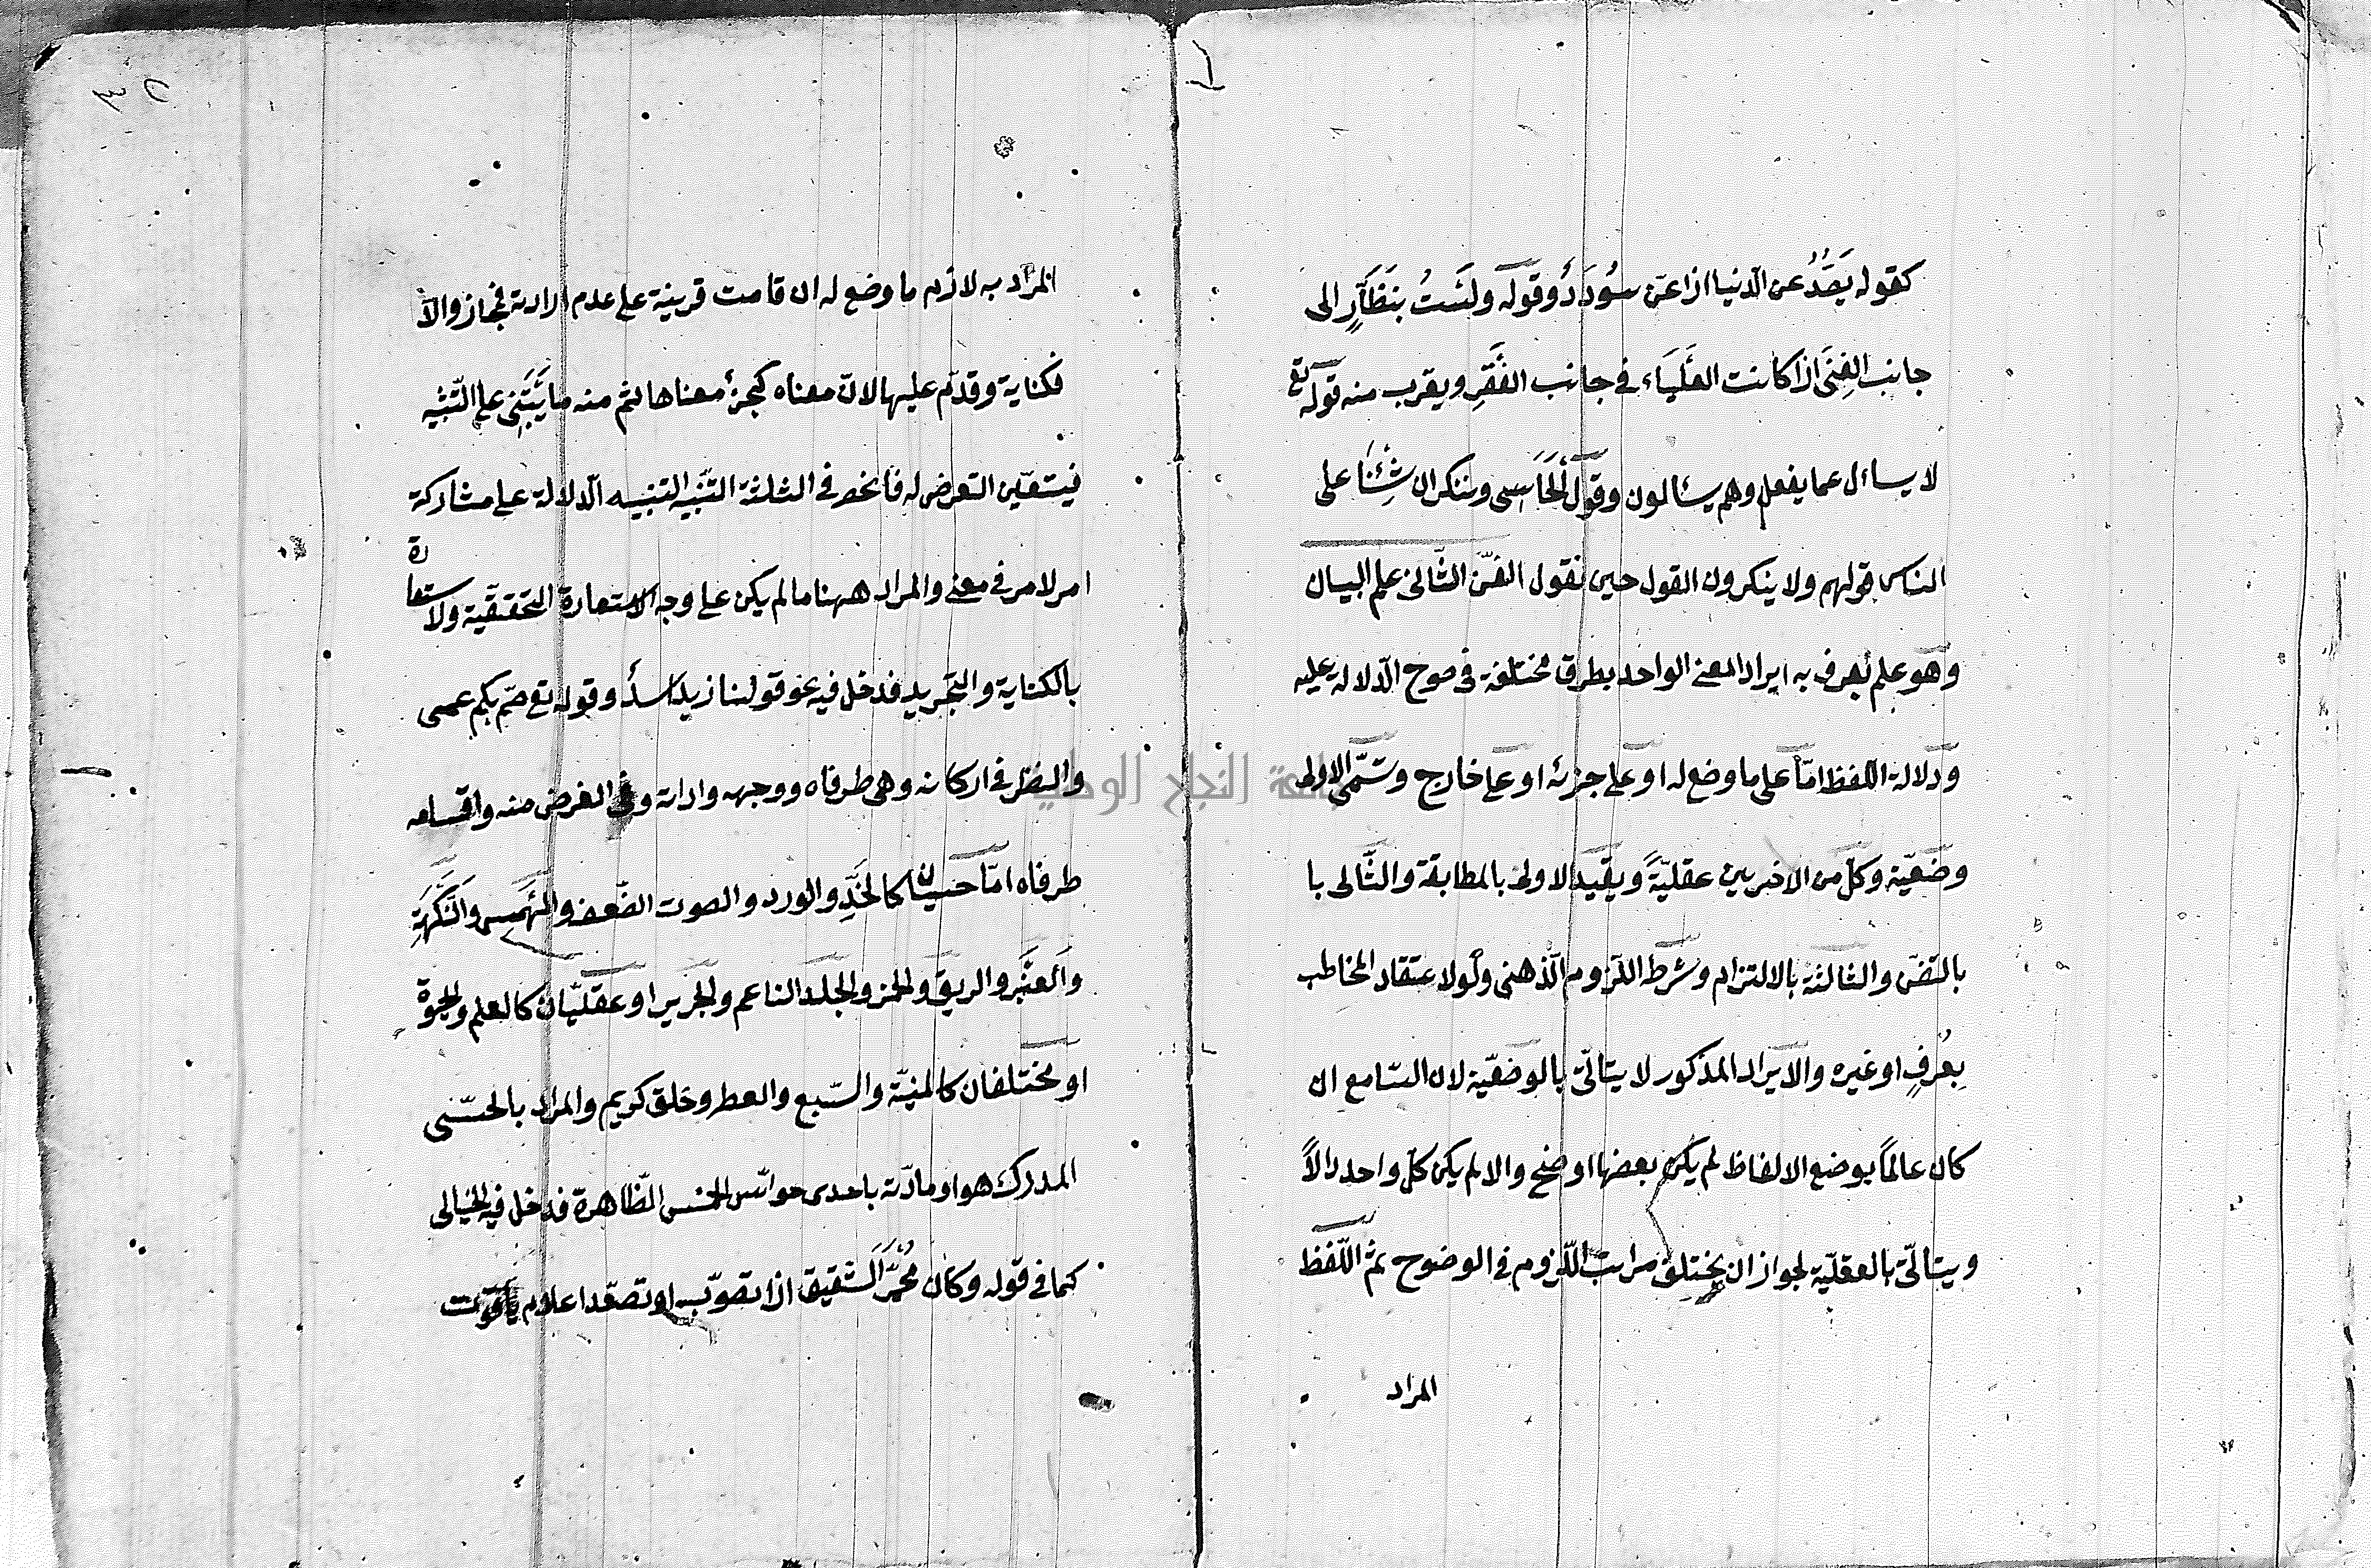 كقوله يَصُدُّ عن الدنيا اذا عَنّ سُودَدُ وقوله ولَسَتُ بنَظَّارٍ الى
جانب الغِنَى اذا كانت العَلْيَاء فى جانب الفَقْرِ ويقرب منه قوله تع
لا يساءل عما يفعل وهم يسئالون وقول الحَمَاسى وننكر ان شِئْنَا على
الناس قولهم ولا ينكرون القول حين نقول الفن الثّانى علم البيان
وهو علم يُعرف به ايراد المعنى الواحد بطرق مختلفة فى وضوح الدلالة عليه
ودلالة اللفظ امّا على ما وضع له او على جزئه او على خارج وتسمّى الاولى
وضعيّة وكلّ من الاخريين عقليّةً ويقيّد الاولى بالمطابقة والثّانى با
بالتضمّن والثالثة بالالتزام وشرط اللزوم الذّهنى ولو لا عتقاد المخاطب
بِعُرفٍ او غيره والايراد المذكور لا يتاتّى بالوضعيّة لان السّامع ان
كان عالماً بوضع الالفاظ لم يكن بعضها اوضح والا لم يكن كلّ واحد دالاًّ
ويتاتّى بالعقليّة لجواز ان يختلف مراتب اللزوم فى الوضوح ثمّ اللّفظ
المراد
المراد به لازم ما وضع له ان قامت قرينة على عدم ارادته فمجاز والاّ
فكناية وقدّم عليها لانّ معناه كجزء معناها ثم منه ما يَبْتَنِى على التّشبيه
فيتعيّن التعرض له فانحصر فى الثلثة التّشبيه التشبيه الّدلالة على مشاركة
امر لامر فى معنى والمراد ههنا ما لم يكن على وجه الاستعارة التحقيقيّة ولاستعارة
بالكناية والتجريد فدخل فيه نحو قولنا زيد اسدٌ وقوله تع صمّ بكم عمى
والنظر فى اركانه وهى طرفاه ووجهه واداته وفى الغرض منه واقسامه
طرفاه امّا حسيّان كالخَدِّ والورد والصوت الضّعيف والهَمس والنَكْهَةِ
والعَنْبَر والريق والخمر والجلد الناعم والحرير او عقليّان كالعلم والحيوة
او مختلفان كالمنيّة والسّبع والعطر وخلق كريم والمراد بالحسّى
المدرك هو او مادّته باحدى حواسّ الخمس الظّاهرة فدخل فيه الخيالى
كما فى قوله وكان مُحْمَرَّ الشَّقيق اذا تصوّب او تصعّد اعلام ياقوت